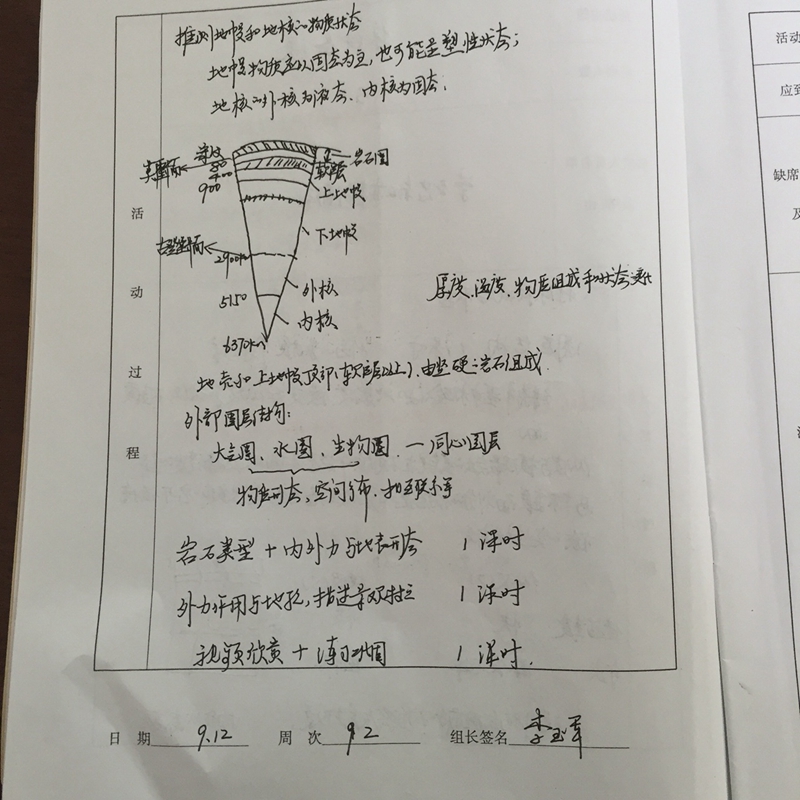 推测地幔和地核的物质状态
地幔物质应以固态为主，也可能是塑性状态；
地核的外核为液态、内核为固态；
深度
80
400
900
岩石圈
软流层
上地幔
下地幔
2900km
外核
5150
内核
6370km
厚度、温度、物质组成和状态
地壳和上地幔顶部（软流层以上），由坚硬岩石组成
外部圈层结构：
大气圈、水圈、生物圈 — 同心圈层
物质形态，空间分布，相互联系
岩石类型＋内外力与地表形态 1课时
外力作用与地貌，描述景观特征 1课时
视频欣赏＋练习巩固 1课时.
活
动
过
程
日 期 9.12 周 次 92 组长签名
活动
应到
缺席
及